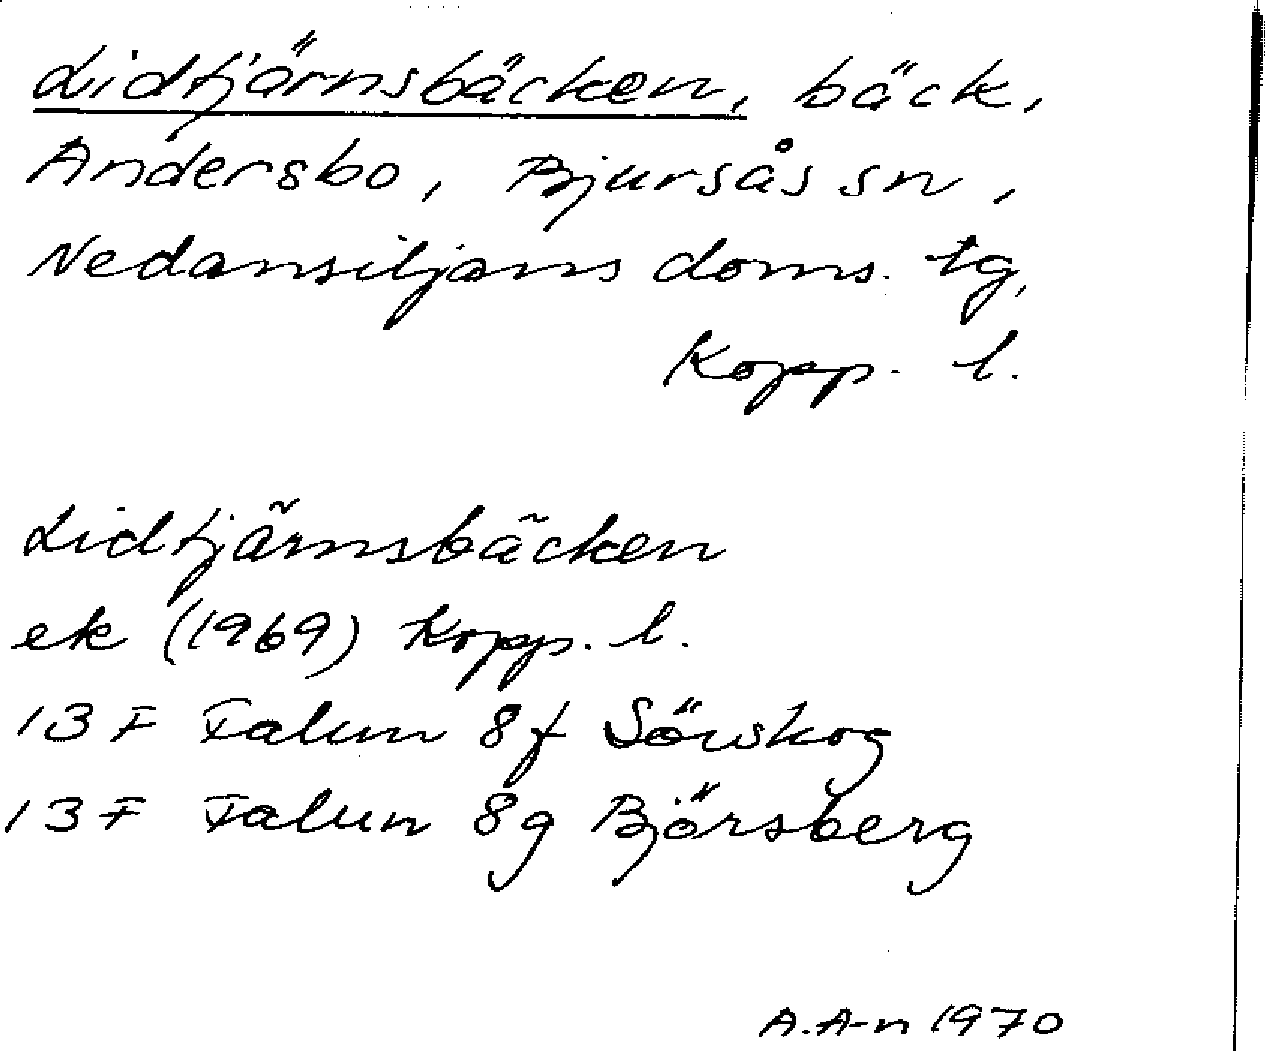 Lidtjärnsbäcken, bäck,
Andersbo, Bjursås sn,
Nedansiljans doms. tg,
Kopp. l.
Lidtjärnsbäcken
ek (1969) Kopp. l.
13 F Falun 8f Sörskog
13 F Falun 8g Björsberg
A.A-n 1970